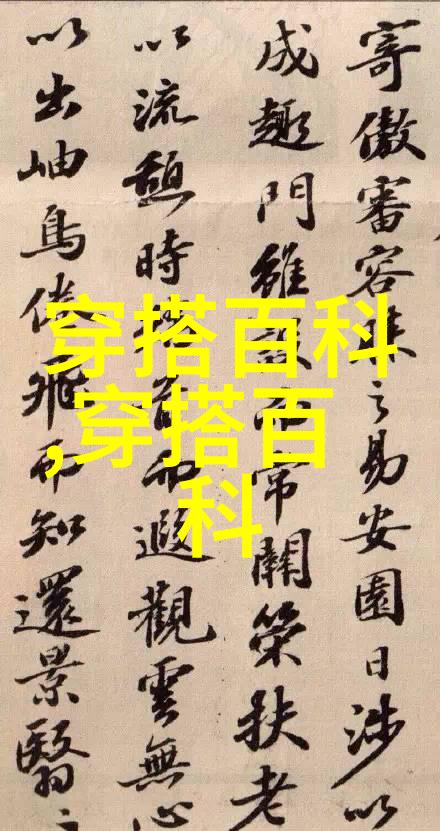 寄傲審容膝之易安園日涉以
成趣門雖設而常關策扶老
以流憩時矯首而遐觀雲無心
以出岫鳥倦飛而知還景翳翳
穿搭百科
,穿搭百
科